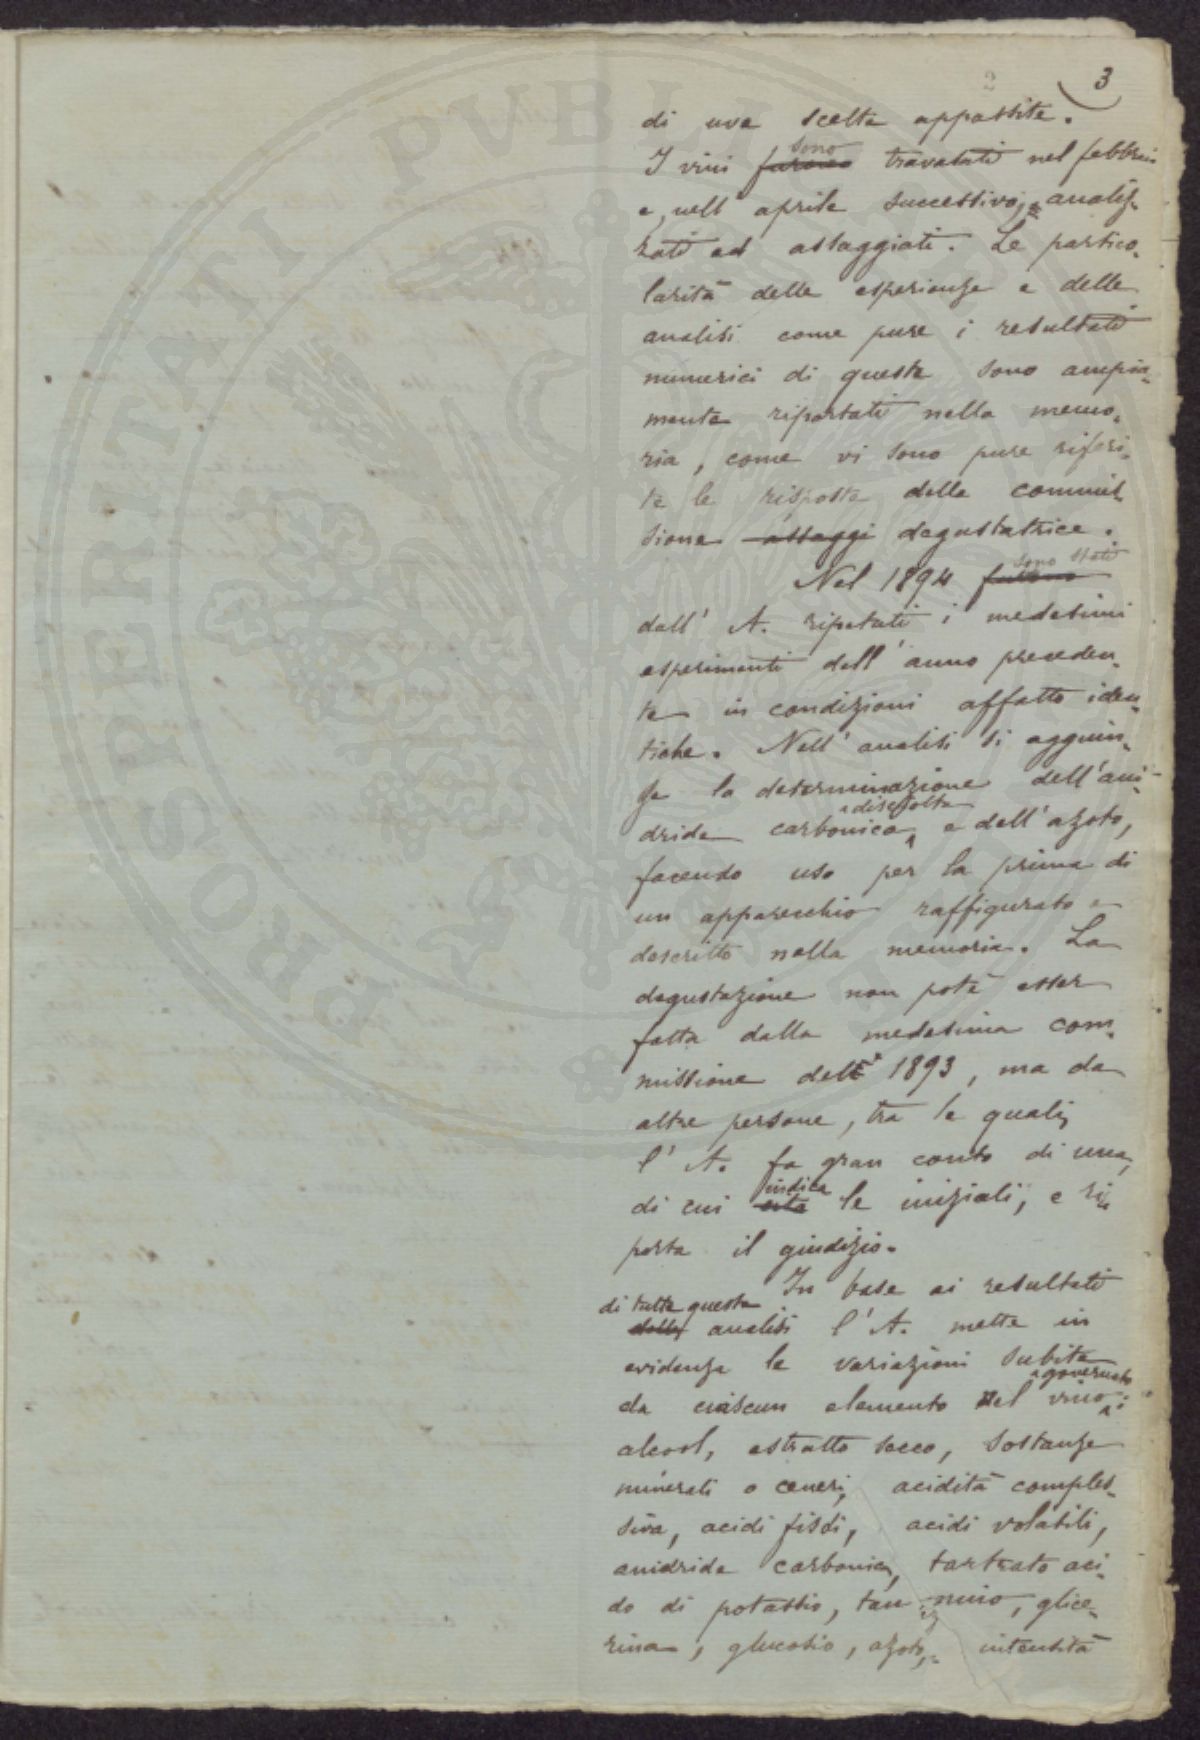 2 3
di uve scelte appassite.
I vini furono sono travasati nel febbraio
e, nell' aprile successivo, analiz-
zati ed assaggiati. Le partico-
larità delle esperienze e delle
analisi come pure i resultati
numerici di queste sono ampia-
mente riportati nella memo-
ria, come vi sono pure riferi-
te le risposte della commis-
sione assaggi degustatrice.
Nel 1894 furono sono stati
dall' A. ripetuti i medesimi
esperimenti dell' anno preceden-
te in condizioni affatto iden-
tiche. Nell' analisi si aggiun-
se la determinazione dell' ani-
dride carbonica disciolta e dell' azoto,
facendo uso per la prima di
un apparecchio raffigurato e
descritto nella memoria. La
degustazione non potè esser
fatta dalla medesima com-
missione del 1893, ma da
altre persone, tra le quali,
l' A. fa gran conto di una,
di cui cita indica le iniziali, e ri-
porta il giudizio.
In base ai resultati
delle di tutte queste analisi l' A. mette in
evidenza le variazioni subite
da ciascun elemento del vino governato:
alcool, estratto secco, sostanze
minerali o ceneri, acidità comples-
siva, acidi fissi, acidi volatili,
anidride carbonica, tartrato aci-
do di potassio, tannino, glice-
rina, glucosio, azoto, intensità
PROSPERITATI PVBLICAE AVGENDAE